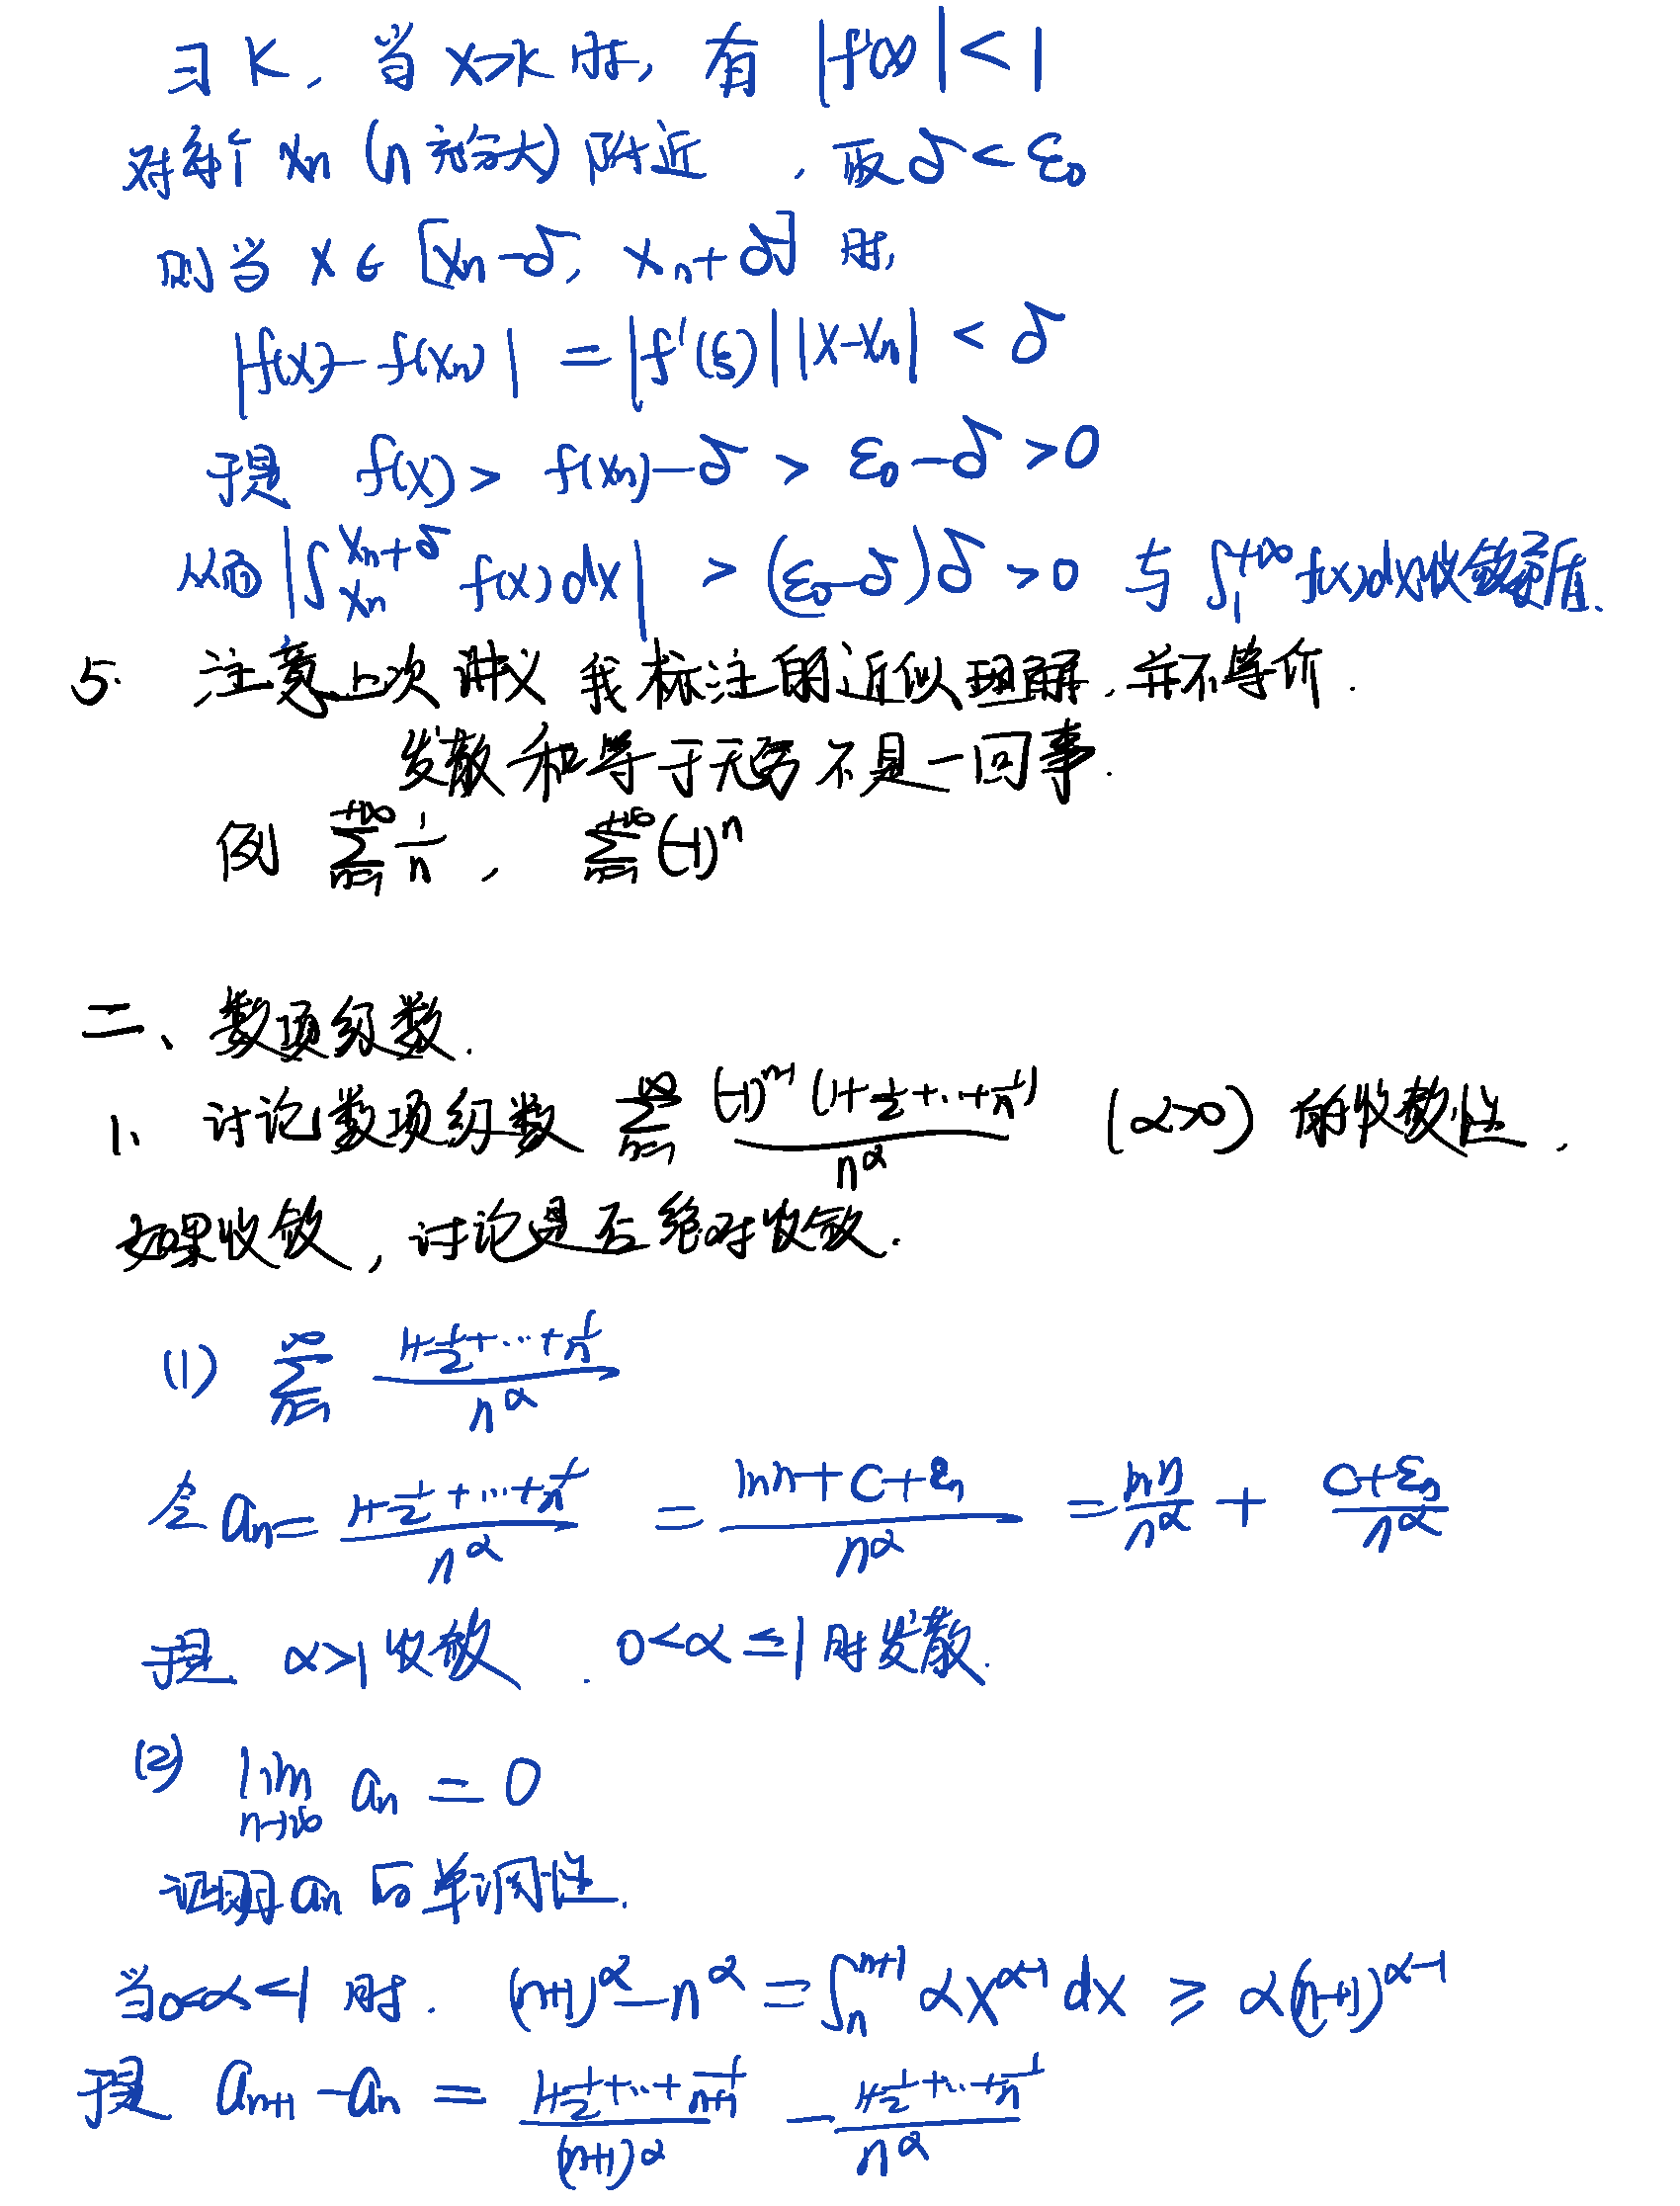 ∃ K, 当 x>K 时, 有 |f'(x)| < 1
对每个 xₙ (n 充分大) 附近 , 取 δ < ε₀
则当 x ∈ [xₙ-δ, xₙ+δ] 时,
|f(x) - f(xₙ)| = |f'(ξ)| |x-xₙ| < δ
于是 f(x) > f(xₙ) - δ > ε₀ - δ > 0
从而 |∫_{xₙ}^{xₙ+δ} f(x) dx| > (ε₀-δ)δ > 0 与 ∫_1^{+∞} f(x)dx 收敛矛盾.
5. 注意上次讲义我标注的近似理解, 并不等价.
发散和等于无穷不是一回事.
例 ∑_{n=1}^{+∞} 1/n , ∑_{n=1}^{+∞} (-1)^n
二、数项级数.
1、讨论数项级数 ∑_{n=1}^{∞} (-1)^{n-1} (1+1/2+…+1/n) / n^α (α>0) 的收敛性,
如果收敛, 讨论是否绝对收敛.
(1) ∑_{n=1}^{∞} (1+1/2+…+1/n) / n^α
令 aₙ = (1+1/2+…+1/n) / n^α = (ln n + C + εₙ) / n^α = ln n / n^α + (C+εₙ) / n^α
于是 α>1 收敛 . 0<α≤1 时发散.
(2) lim_{n→∞} aₙ = 0
证明 aₙ 的单调性.
当 0<α<1 时. (n+1)^α - n^α = ∫_n^{n+1} αx^{α-1} dx ≥ α(n+1)^{α-1}
于是 aₙ₊₁ - aₙ = (1+1/2+…+1/(n+1)) / (n+1)^α - (1+1/2+…+1/n) / n^α